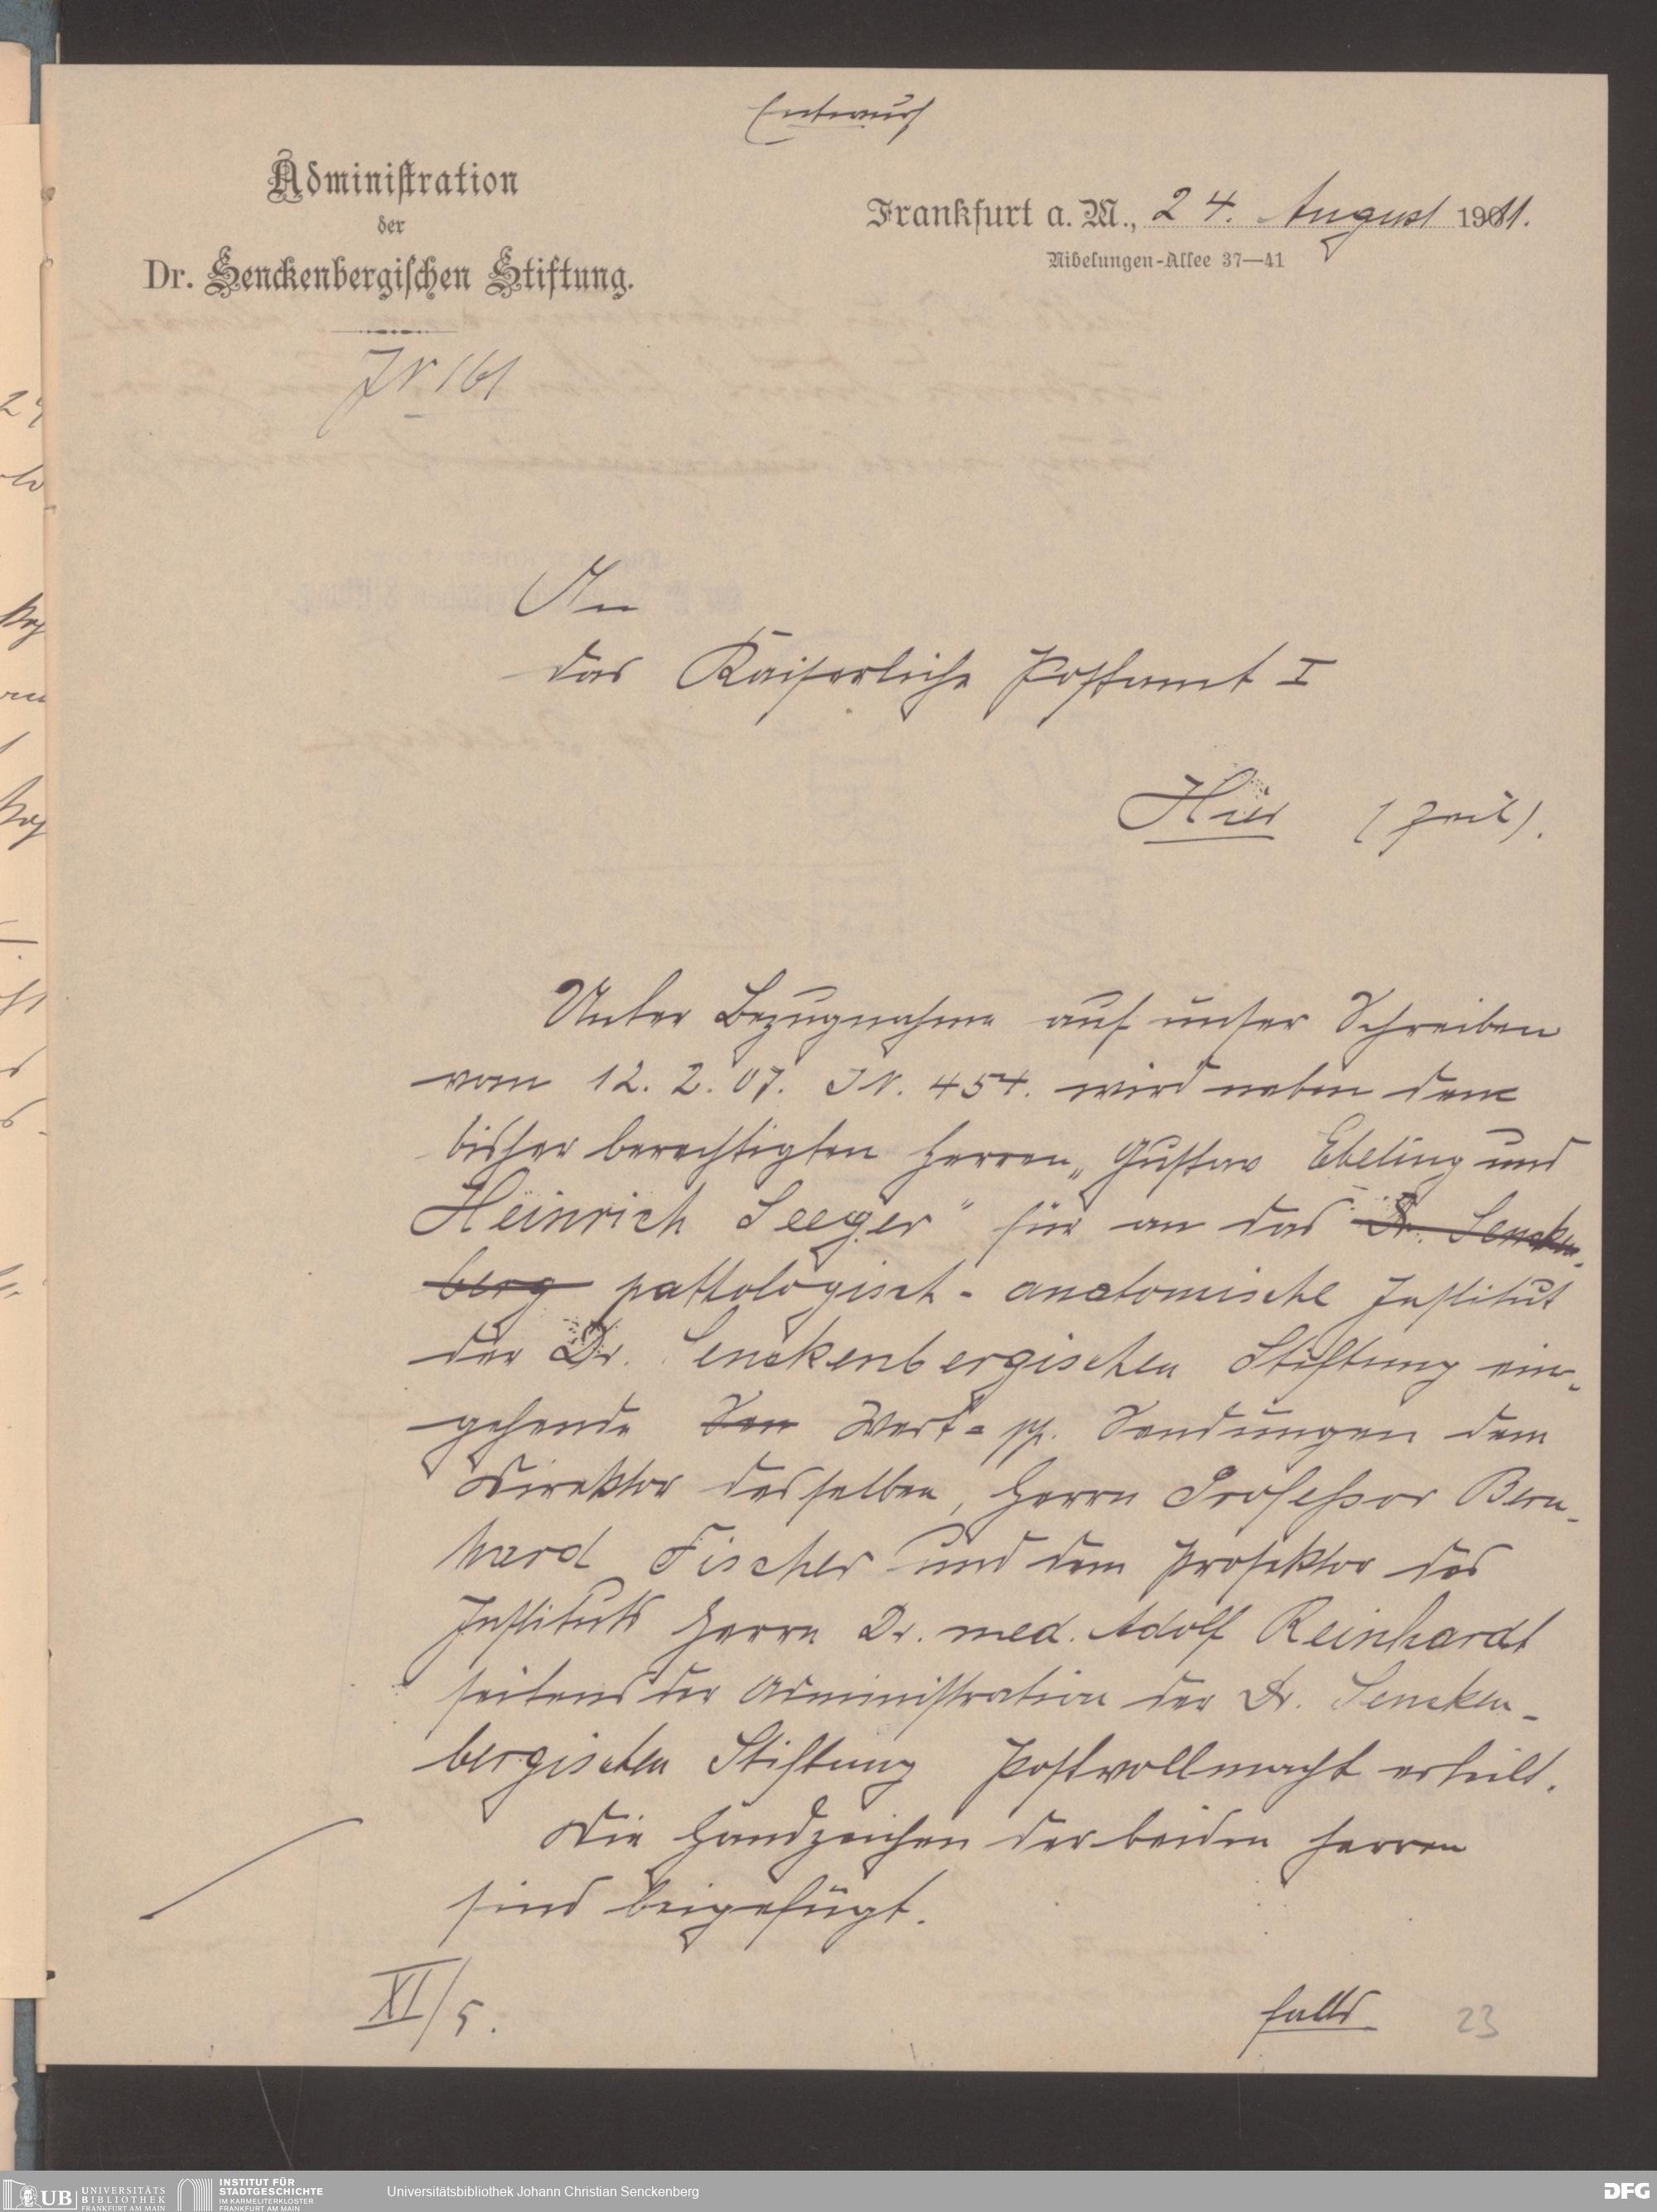 Entwurf
Administration
der
Dr. Senckenbergischen Stiftung.
Frankfurt a. M., 24. August 1911.
Nibelungen-Allee 37—41
JN 161
An
das Kaiserliche Postamt I
Hier (Zeil).
Unter Bezugnahme auf unser Schreiben
vom 12. 2. 07. JN. 454. wird neben den
bisher berechtigten Herren „Gustav Ebeling und
Heinrich Seeger" für an das Dr. Sencken-
berg pathologisch-anatomische Institut
der Dr. Senckenbergischen Stiftung ein-
gehende Sen Wert- pp. Sendungen dem
Direktor desselben, Herrn Professor Bern-
hard Fischer und dem Prosektor des
Instituts Herrn Dr. med. Adolf Reinhardt
seitens der Administration der Dr. Sencken-
bergischen Stiftung Postvollmacht erteilt.
Die Handzeichen der beiden Herren
sind beigefügt.
XI/5.
falls
23
UB UNIVERSITÄTS
BIBLIOTHEK
FRANKFURT AM MAIN
INSTITUT FÜR
STADTGESCHICHTE
IM KARMELITERKLOSTER
FRANKFURT AM MAIN
Universitätsbibliothek Johann Christian Senckenberg
DFG